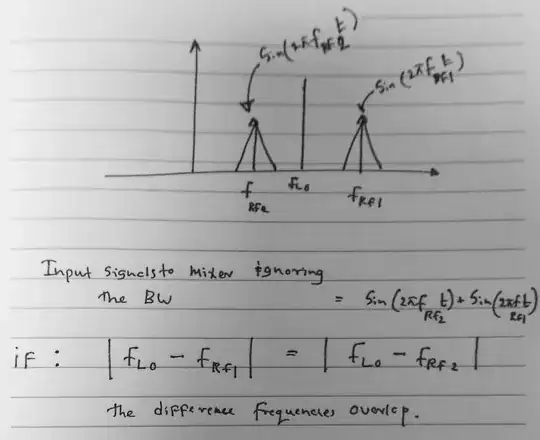 Sin(2πf_RF2 t)
Sin(2πf_RF1 t)
f_RF2 f_LO f_RF1
Input signals to mixer ignoring
the BW = Sin(2πf_RF2 t) + Sin(2πf_RF1 t)
if : |f_LO - f_RF1| = |f_LO - f_RF2|
the difference frequencies overlap.